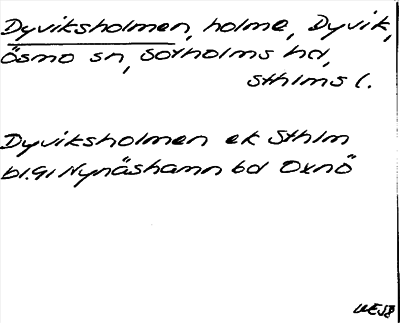 Dyviksholmen, holme, Dyvik,
Ösmo sn, Sotholms hd,
Sthlms l.
Dyviksholmen ek Sthlm
bl.91 Nynäshamn bd Oxnö